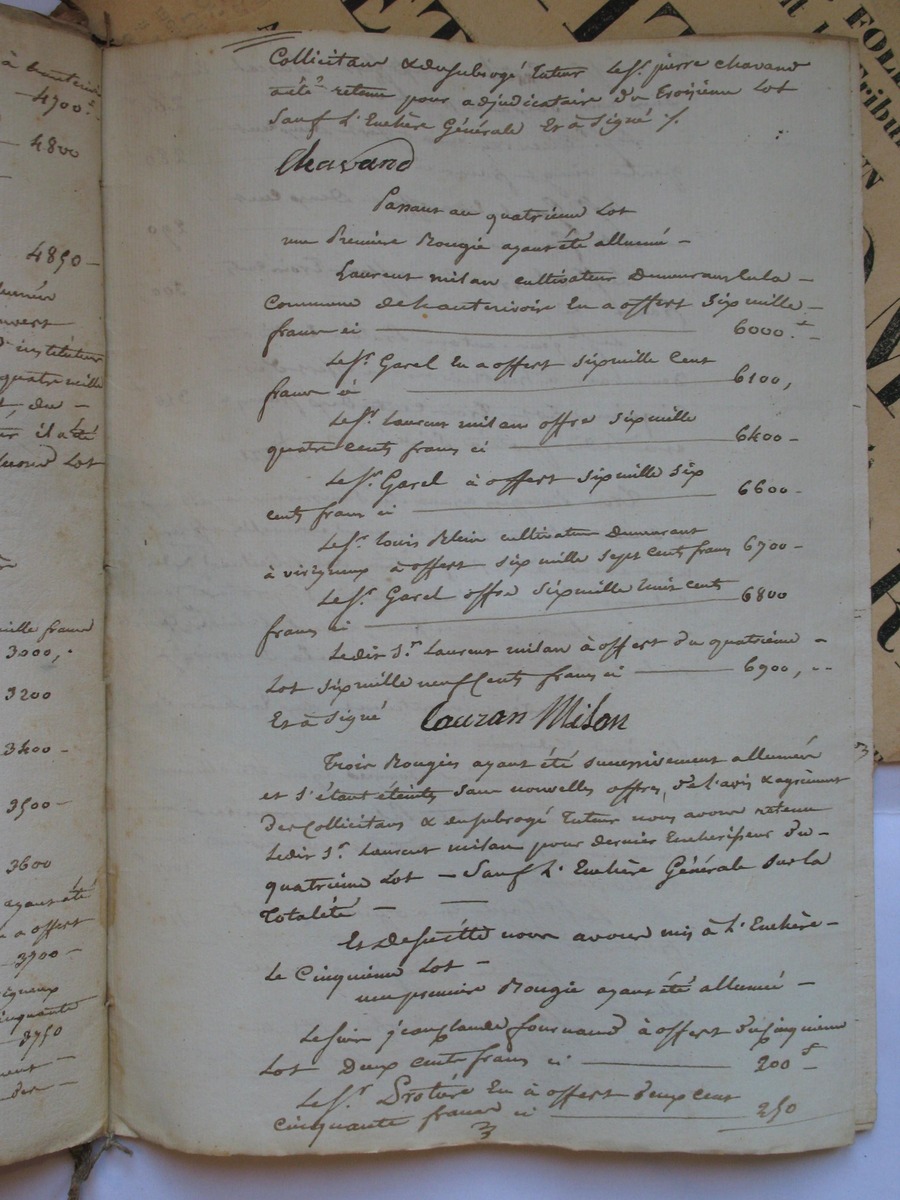 Collicitans & du subrogé tuteur le Sr. pierre Chavand
a été retenu pour adjudicataire du troisième Lot
sauf L'Enchère Générale Et à Signé ./.
Chavand
Passant au quatrième Lot
une Première Bougie ayant été allumé –
Laurent milan cultivateur Demeurant En la –
Commune de hauterivoire En a offert Six mille –
francs ci 6000.f
Le Sr. Garel En a offert six mille Cent
francs ci 6100,
Le Sr Laurent milan offre six mille
quatre cents francs ci 6400 –
Le Sr. Garel à offert six mille six
cents francs ci 6600 –
Le Sr. Louis Blein cultivateur Demeurant
à virigneux à offert six mille sept cents francs 6700 –
Le Sr. Garel offre six mille huit cents
francs ci 6800
Ledit Sr. Laurent milan à offert du quatrième –
Lot six mille neuf Cents francs ci 6900,
Et à Signé Lauran Milan
Trois Bougies ayant été successivement allumées
et s'étant éteintes sans nouvelles offres, de l'avis & agrément
des Collicitans & du subrogé Tuteur nous avons retenu
Ledit Sr. Laurent milan pour dernier Encherisseur du –
quatrième Lot – Sauf L'Enchère Générale sur la
Totaleté –
Et de suitte nous avons mis à L'Enchère –
Le Cinquième Lot –
une premiere Bougie ayant été allumé –
Le sieur jean plaude fournand à offert du cinquieme
Lot Deux cents francs ci 200 f
Le Sr. Protière En à offert deux cent
cinquante francs ci 250
3
4700
4800
4850 –
d'instituteur
quatre mille
il a été
Lot
mille francs
3000,
3200
3400 –
3500 –
3600
ayant été
a offert
3700 –
cinquante
3750